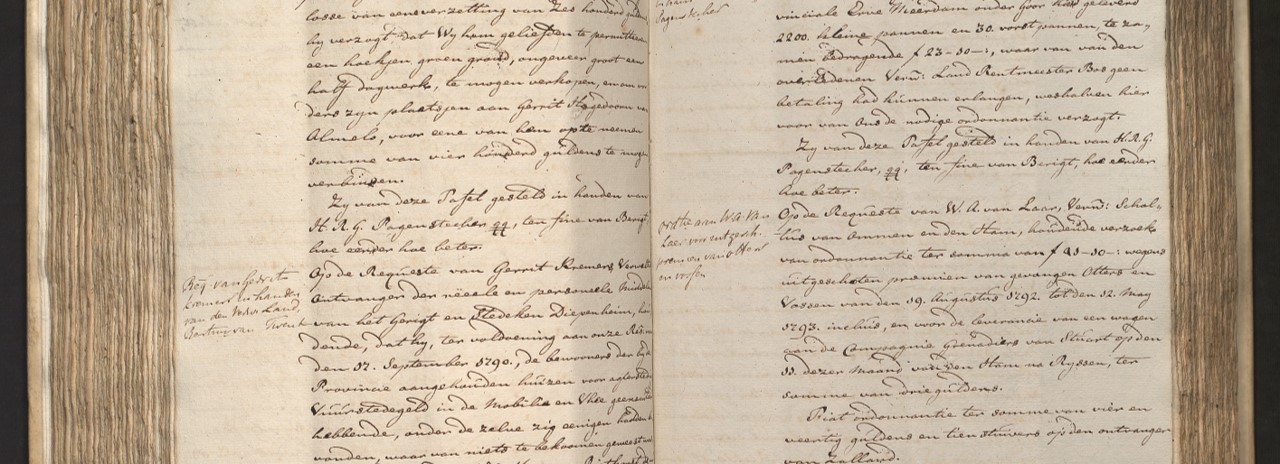 losse van eene verzetting van Zes honderd
hy verzogt dat Wy hem geliefden te permitteeren
een hoekjen groen grond, ongeveer groot een
half dagwerk, te mogen verkopen, en om van
ders zyn plaatsjen aan Gerrit Hogedoorn van
Almelo, voor eene van hem op te neemen
somme van vier honderd guldens te moge
verbinden.
Zy van deze Tafel gesteld in handen van
H. R. G. Pagenstecher, ten fine van Berigt
hoe eerder hoe beter.
Req. van Gerrit
Kremers in handen
van den Verw. Land
Rentmr. van Twent
Op de Requeste van Gerrit Kremers, Verw.
Ontvanger der reëele en personeele Midd
van het Gerigt en Stedeken Diepenheim, hou
dende, dat hy, ter voldoening aan onze Res:
den 17. September 1790., de bewooners der by de
Provincie aangehouden huizen voor agterstedig
Vuurstedegeld in de Mobilia en Vhee geexecuteerd
hebbende, onder de zelve zig eenigen hadden
vonden, waar van niets te bekoomen geweest
Pagenstecher
vinciale Erve Meerdam onder Goor had geleverd
2200. kleine pannen en 30. vorstpannen, te za,,
men bedragende f 23-10-:, waar van van den
overledenen Verw. Land Rentmeester Bos geen
betaling had kunnen erlangen, weshalven hier
voor van Ons de nodige ordonnantie verzogt.
Zy van deze Tafel gesteld in handen van H. R. G.
Pagenstecher, ten fine van Berigt, hoe eerder
hoe beter.
ordtie aan W. A. van
Laer voor uitgesch.
premien van Otters
en vossen
Op de Requeste van W. A. van Laar, Verw: Schol-
tus van Ommen en den Ham, houdende verzoek
van ordonnantie ter somma van f 41-10-: wegens
uitgeschoten premien van gevangen Otters en
Vossen van den 19. Augustus 1792. tot den 12. May
1793. incluis, en voor de leverancie van een wagen
aan de Compagnie Grenadiers van Stuart op den
11. dezer Maand van den Ham na Ryssen, ter
somme van drie guldens.
Fiat ordonnantie ter somme van vier en
veertig guldens en tien stuivers op den ontvanger
van Zalland.